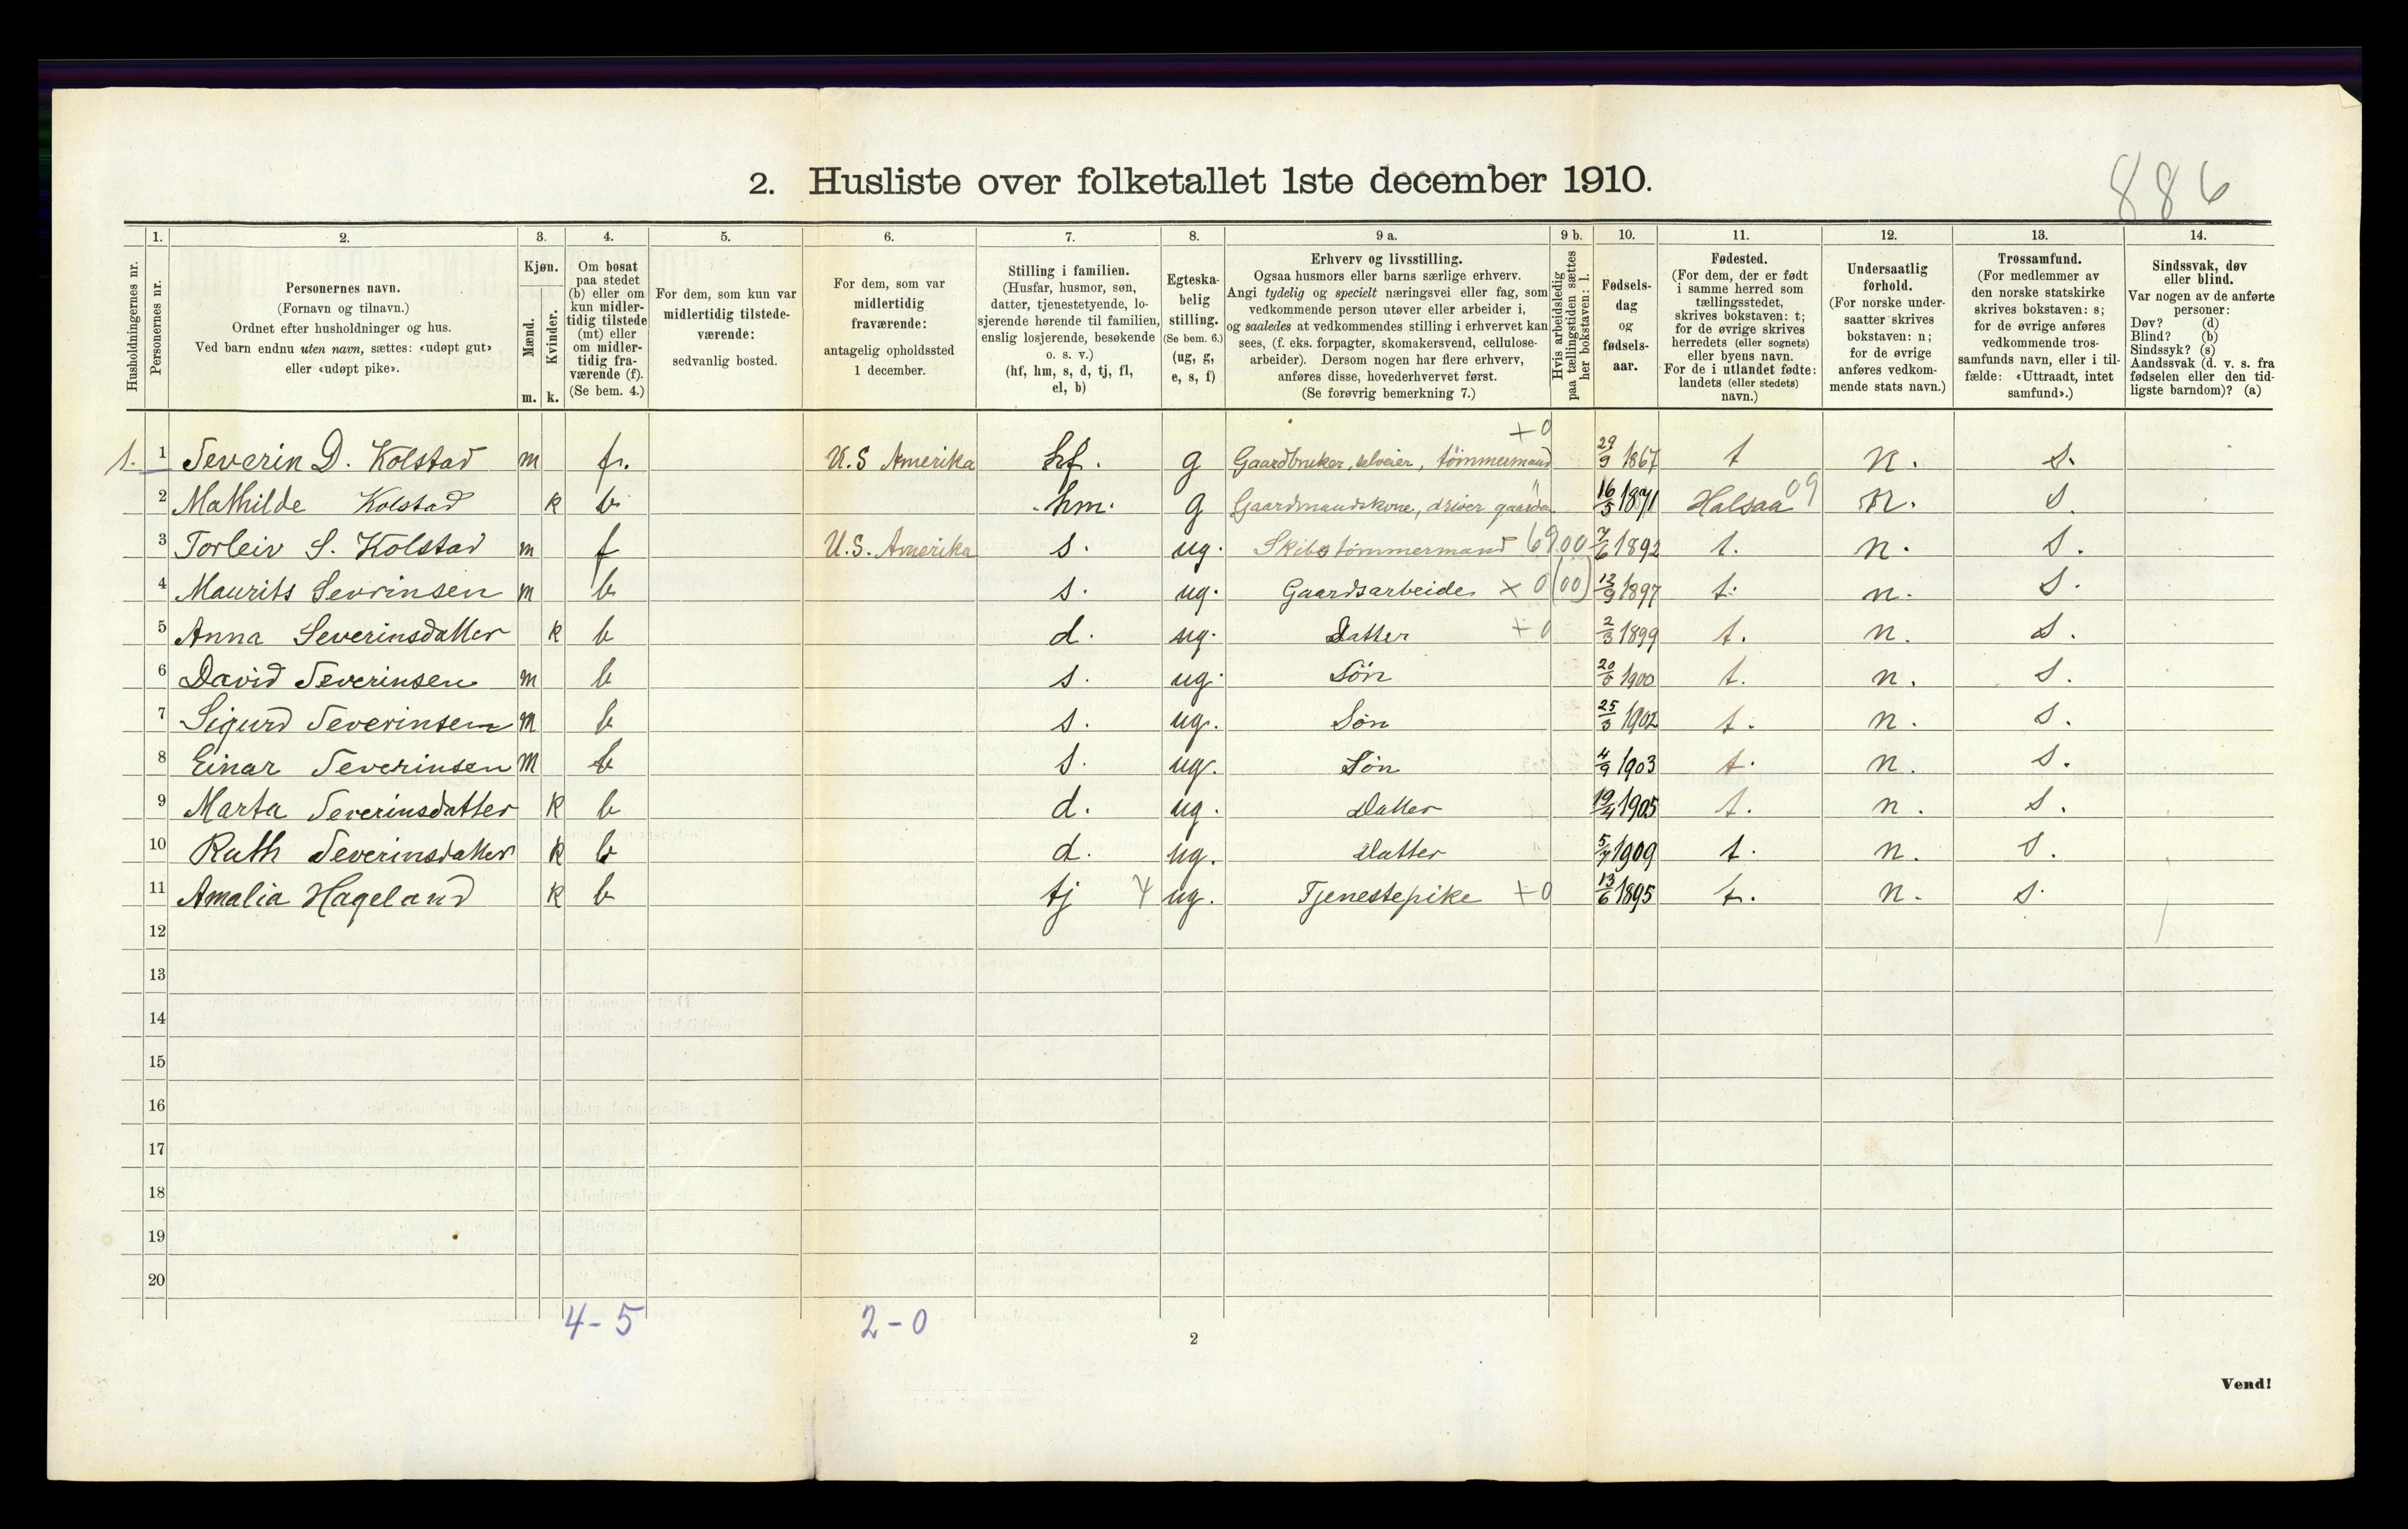 886
2. Husliste over folketallet 1ste december 1910.
Husholdningernes nr.
1.
Personernes nr.
2.
Personernes navn.
(Fornavn og tilnavn.)
Ordnet efter husholdninger og hus.
Ved barn endnu uten navn, sættes: «udøpt gut»
eller «udøpt pike».
3.
Kjøn.
Mænd.
Kvinder.
m. k.
4.
Om bosat
paa stedet
(b) eller om
kun midler-
tidig tilstede
(mt) eller
om midler-
tidig fra-
værende (f).
(Se bem. 4.)
5.
For dem, som kun var
midlertidig tilstede-
værende:
sedvanlig bosted.
6.
For dem, som var
midlertidig
fraværende:
antagelig opholdssted
1 december.
7.
Stilling i familien.
(Husfar, husmor, søn,
datter, tjenestetyende, lo-
sjerende hørende til familien,
enslig losjerende, besøkende
o. s. v.)
(hf, hm, s, d, tj, fl,
el, b)
8.
Egteska-
belig
stilling.
(Se bem. 6.)
(ug, g,
e, s, f)
9 a.
Erhverv og livsstilling.
Ogsaa husmors eller barns særlige erhverv.
Angi tydelig og specielt næringsvei eller fag, som
vedkommende person utøver eller arbeider i,
og saaledes at vedkommendes stilling i erhvervet kan
sees, (f. eks. forpagter, skomakersvend, cellulose-
arbeider). Dersom nogen har flere erhverv,
anføres disse, hovederhvervet først.
(Se forøvrig bemerkning 7.)
9 b.
Hvis arbeidsledig
paa tællingstiden sættes
her bokstaven: l.
10.
Fødsels-
dag
og
fødsels-
aar.
11.
Fødested.
(For dem, der er født
i samme herred som
tællingsstedet,
skrives bokstaven: t;
for de øvrige skrives
herredets (eller sognets)
eller byens navn.
For de i utlandet fødte:
landets (eller stedets)
navn.)
12.
Undersaatlig
forhold.
(For norske under-
saatter skrives
bokstaven: n;
for de øvrige
anføres vedkom-
mende stats navn.)
13.
Trossamfund.
(For medlemmer av
den norske statskirke
skrives bokstaven: s;
for de øvrige anføres
vedkommende tros-
samfunds navn, eller i til-
fælde: «Uttraadt, intet
samfund».)
14.
Sindssvak, døv
eller blind.
Var nogen av de anførte
personer:
Døv? (d)
Blind? (b)
Sindssyk? (s)
Aandssvak (d. v. s. fra
fødselen eller den tid-
ligste barndom)? (a)
+0
1. 1 Severin D. Kolstad m f. U.S Amerika hf. g Gaardbruker, selveier, tömmermand 29/9 1867 t n. s.
2 Mathilde Kolstad k b hm. g Gaardmandskone, driver gaarden 16/5 1871 Halsaa 09 n. s.
3 Torleiv S. Kolstad m f U.S. Amerika s. ug. Skibstömmermand 6900 7/6 1892 t. n. s.
4 Maurits Sevrinsen m b s. ug. Gaardsarbeide x 0 (00) 12/9 1897 t. n. s.
5 Anna Severinsdatter k b d. ug. Datter +0 2/3 1899 t. n. s.
6 David Severinsen m b s. ug. Sön 1900 t. n. s.
7 Sigurd Severinsen m b s. ug. Sön 25/3 1902 t. n. s.
8 Einar Severinsen m b s. ug. Sön 4/9 1903 t. n. s.
9 Marta Severinsdatter k b d. ug. Datter 19/4 1905 t. n. s.
10 Ruth Severinsdatter k b d. ug. Datter 5/7 1909 t. n. s.
11 Amalia Hageland k b tj 4 ug. Tjenestepike +0 13/6 1895 t. n. s.
12
13
14
15
16
17
18
19
20
4-5 2-0
2
Vend!